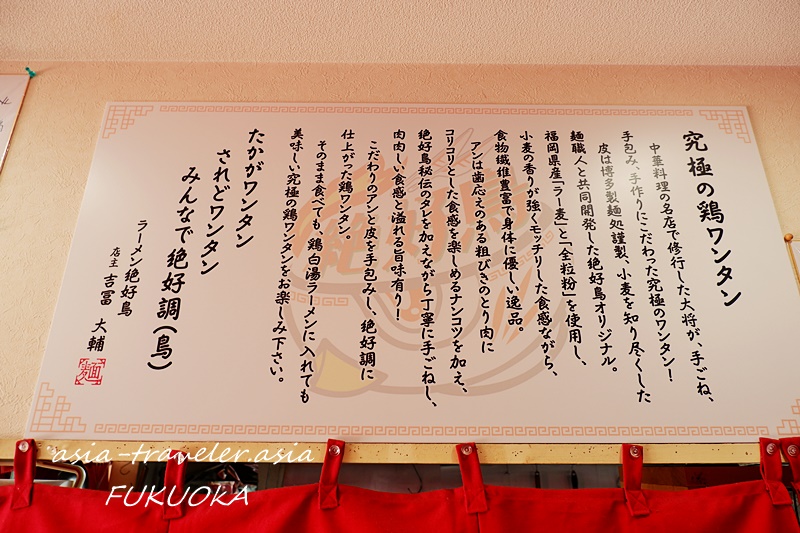 究極の鶏ワンタン
中華料理の名店で修行した大将が、手ごね、
手包み、手作りにこだわった究極のワンタン！
皮は博多製麺処謹製、小麦を知り尽くした
麺職人と共同開発した絶好鳥オリジナル。
福岡県産「ラー麦」と「全粒粉」を使用し、
小麦の香りが強くモッチリした食感ながら、
食物繊維豊富で身体に優しい逸品。
アンは歯応えのある粗びきのとり肉に
コリコリとした食感を楽しめるナンコツを加え、
絶好鳥秘伝のタレを加えながら丁寧に手ごねし、
肉肉しい食感と溢れる旨味有り！
こだわりのアンと皮を手包みし、絶好調に
仕上がった鶏ワンタン。
そのまま食べても、鶏白湯ラーメンに入れても
美味しい究極の鶏ワンタンをお楽しみ下さい。
たかがワンタン
されどワンタン
みんなで絶好調（鳥）
ラーメン絶好鳥
店主 吉冨 大輔
asia-traveler.asia
FUKUOKA